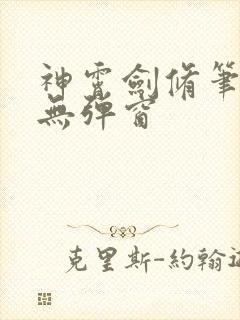 神霄劍脩筆
無彈窗
克里斯-約翰遜